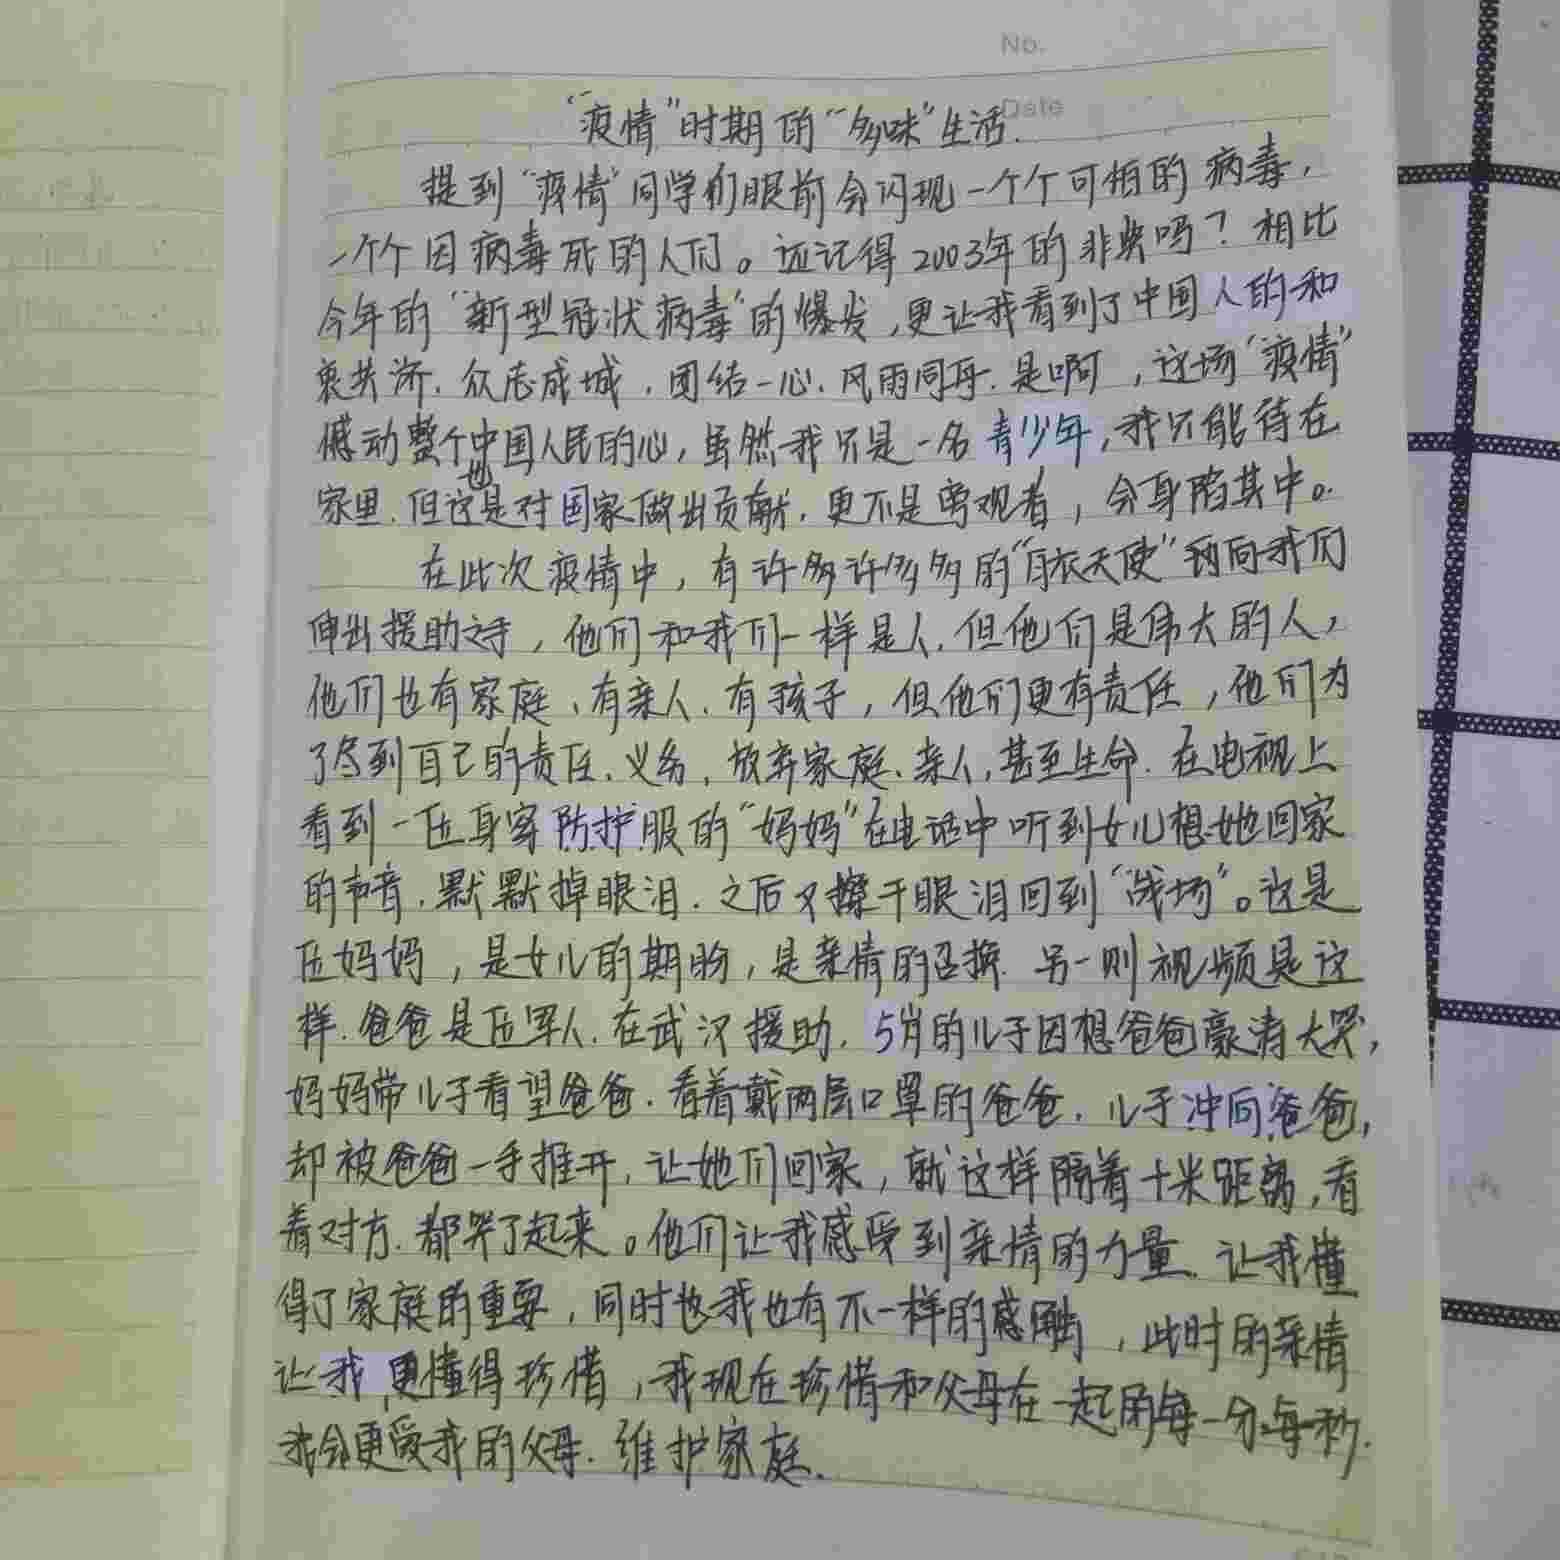 No.
Date
“疫情”时期的“多味”生活.
提到“疫情”同学们眼前会闪现一个个可怕的病毒,
一个个因病毒死的人们。还记得2003年的非典吗?相比
今年的“新型冠状病毒”的爆发,更让我看到了中国人的和
衷共济.众志成城,团结一心.风雨同舟.是啊,这场“疫情”
撼动整个中国人民的心,虽然我只是一名青少年,我只能待在
家里.但这也是对国家做出贡献.更不是旁观者,会身陷其中。
在此次疫情中,有许多许多多的“白衣天使”纷向我们
伸出援助之手,他们和我们一样是人.但他们是伟大的人,
他们也有家庭、有亲人、有孩子,但他们更有责任,他们为
了尽到自己的责任、义务,放弃家庭、亲人,甚至生命.在电视上
看到一位身穿防护服的“妈妈”在电话中听到女儿想她回家
的声音.默默掉眼泪.之后又擦干眼泪回到“战场”。这是
位妈妈,是女儿的期盼,是亲情的召换.另一则视频是这
样.爸爸是位军人.在武汉援助.5岁的儿子因想爸爸豪淘大哭,
妈妈带儿子看望爸爸.看着戴两层口罩的爸爸.儿子冲向爸爸,
却被爸爸一手推开,让她们回家,就这样隔着十米距离,看
着对方.都哭了起来。他们让我感受到亲情的力量.让我懂
得了家庭的重要,同时也我也有不一样的感触,此时的亲情
让我更懂得珍惜,我现在珍惜和父母在一起的每一分每一秒.
我会更爱我的父母.维护家庭.